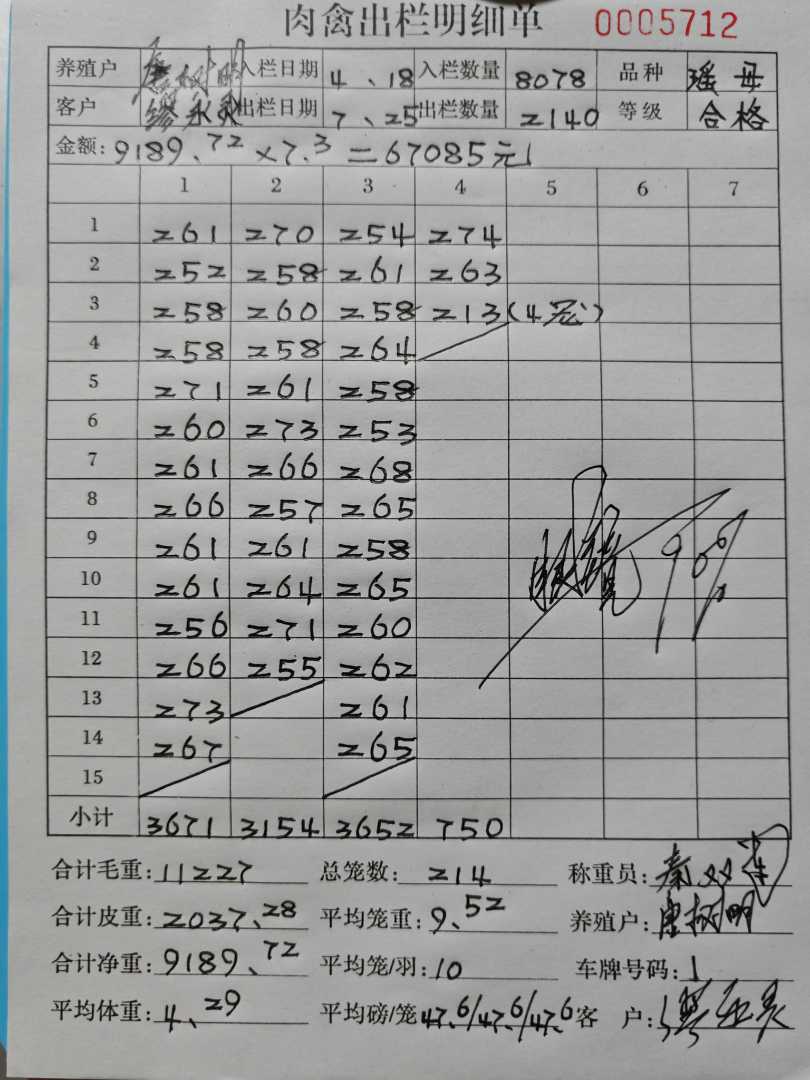 肉禽出栏明细单 0005712
养殖户 唐树明 入栏日期 4、18 入栏数量 8078 品种 瑶母
客户 缪永灵 出栏日期 7、25 出栏数量 2140 等级 合格
金额: 9189.72×7.3=67085元
1 2 3 4 5 6 7
1 261 270 254 274
2 252 258 261 263
3 258 260 258 213(4笼)
4 258 258 264
5 271 261 258
6 260 273 253
7 261 266 268
8 266 257 265
9 261 261 258
10 261 264 265
11 256 271 260
12 266 255 262
13 273 261
14 267 265
15
小计 3671 3154 3652 750
合计毛重: 11227 总笼数: 214 称重员: 秦双
合计皮重: 2037.28 平均笼重: 9.52 养殖户: 唐树明
合计净重: 9189.72 平均笼/羽: 10 车牌号码: 1
平均体重: 4.29 平均磅/笼 47.6/47.6/47.6 客 户: